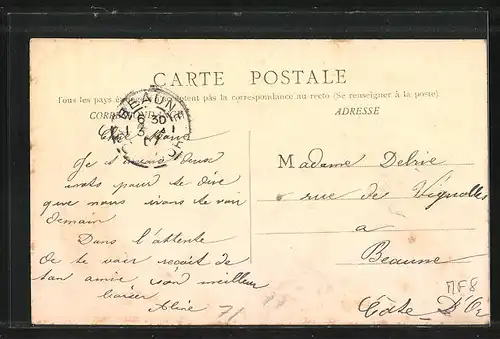 CARTE POSTALE
Tous les pays étrangers n'acceptent pas la correspondance au recto (Se renseigner à la poste)
CORRESPONDANCE
ADRESSE
BEAUNE
6 30
07
Chère Marie
Je t'écris deux
mots pour te dire
que nous irons te voir
demain
Dans l'attente
de te voir reçoit de
ton amie son meilleur
baiser
Aline
Madame Debrie
rue de Vignolles
a
Beaune
Côte D'Or
MF8